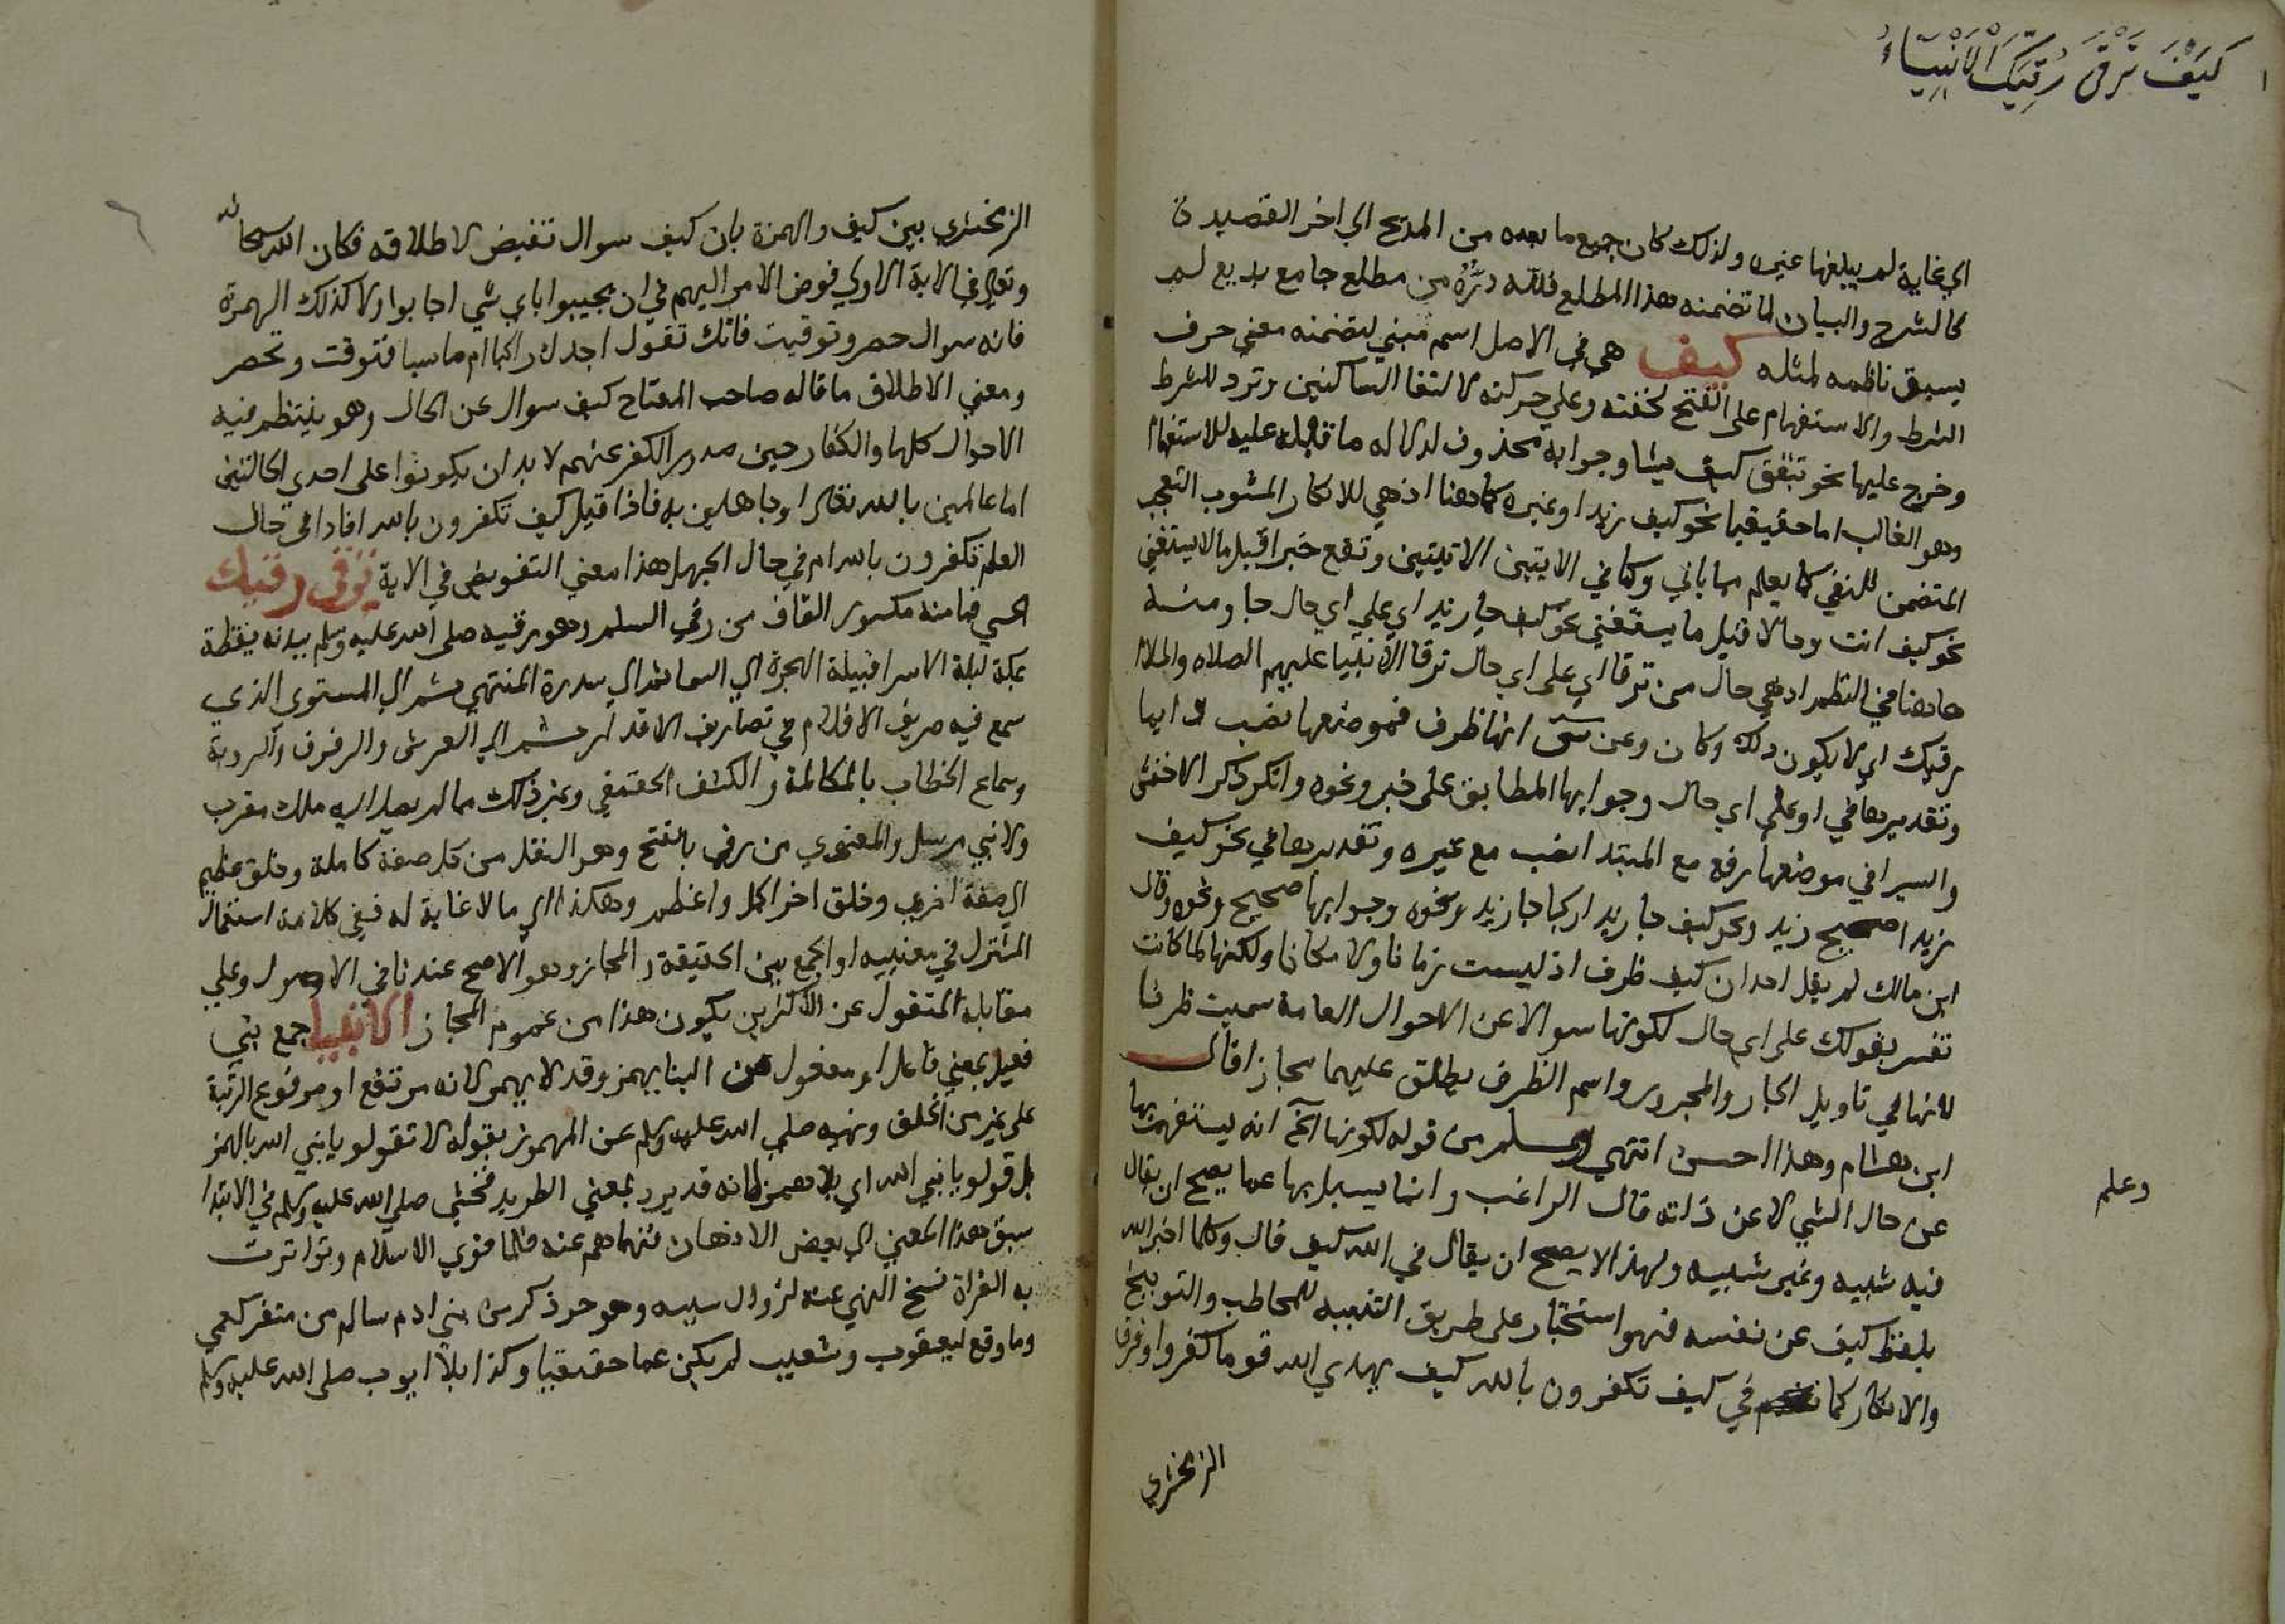 كَيْفَ تَرْقَى رُقِيَّكَ الْأَنْبِيَاءُ
١
اي غاية لم يبلغها غيره ولذلك كان جميع ما بعده من المديح الي اخر القصيدة
كالشرح والبيان لما تضمنه هذا المطلع فلله درُّهُ من مطلع جامع بديع لم
يسبق ناظمه لمثله كيف هي في الاصل اسم مبني لتضمنه معني حرف
الشرط والاستفهام على الفتح لخفته وعلي حركته لالتقا الساكنين وترد للشرط
وخرج عليها نحو تنفق كيف يشا وجوابه محذوف لدلالة ما قبله عليه للاستفهام
وهو الغالب اما حقيقيا نحو كيف زيد او غيره كما هنا اذ هي للانكار المشوب التعجب
المتضمن للنفي كما يعلم مما ياتي وكما في الايتين الاتيتين وتقع خبرا قبل ما لا يستغني
نحو كيف انت وحالا قبل ما يستغني نحو كيف جا زيد اي علي اي حال جا ومنه
ما هنا في النظم اذ هي حال من ترقا اي على اي حال ترقا الانبيا عليهم الصلاه والسلام
رقيك اي لا يكون ذلك وكان وعن س انها ظرف فموضعها نصب دايما
وتقديرها في او على اي حال وجوابها المطابق على خير ونحوه وانكر ذكر الاخفش
والسيرافي موضعها رفع مع المبتدا نصب مع غيره وتقديرها في نحو كيف
زيد اصحيح زيد ونحو كيف جا زيد اراكبا جا زيد ونحوه وجوابها صحيح ونحوه وقال
ابن مالك لم يقل احد ان كيف ظرف اذ ليست زمانا ولا مكانا ولكنها لما كانت
تفسر بقولك على اي حال لكونها سوالا عن الاحوال العامة سميت ظرفا
لانها في تاويل الجار والمجرور واسم الظرف يطلق عليهما مجازا قال
ابن هشام وهذا احسن انتهي وعلم من قوله لكونها الخ انه يستفهم بها
وعلم
عن حال الشي لا عن ذاته قال الراغب وانما يسيل بها عما يصح ان يقال
فيه شبيه وغير شبيه ولهذا لا يصح ان يقال في الله كيف قال وكلما اخبر الله
بلفظ كيف عن نفسه فهو استخبار على طريق التنبيه للمخاطب والتوبيخ
والانكار كما في كيف تكفرون بالله كيف يهدي الله قوما كفروا وفرق
الزمخشري
الزمخشري بين كيف والهمزة بان كيف سوال تفيض لاطلاقه فكان الله سبحانه
وتعالى في الاية الاولي فوض الامر اليهم في ان يجيبوا باي شي اجابوا ولا كذلك الهمزة
فانه سوال حصر وتوقيت فانك تقول اجاك راكبا ام ماشيا فتوقت وتحصر
ومعني الاطلاق ما قاله صاحب المفتاح كيف سوال عن الحال وهو ينتظم فيه
الاحوال كلها والكفار حين صدور الكفر عنهم لا بد ان يكونوا على احدي الحالتين
اما عالمين بالله تعالى او جاهلين به فاذا قيل كيف تكفرون بالله افاد افي حال
العلم تكفرون بالله ام في حال الجهل هذا معني التفويض في الاية ترقى رقيك
الحسي فمامنه مكسور القاف من رقي السلم وهو رقيه صلى الله عليه وسلم ببدنه يقظة
بمكة ليلة الاسرا قبيلة الهجرة الي السما ثم الي سدرة المنتهي ثم الي المستوي الذي
سمع فيه صريف الاقلام في تصاريف الاقدار ثم الي العرش والرفرف والروية
وسماع الخطاب بالمكالمة والكشف الحقيقي وغير ذلك مما لم يصل اليه ملك مقرب
ولا نبي مرسل والمعنوي من رقي بالفتح وهو النقل من كل صفة كاملة وخلق عظيم
الي صفة اخري وخلق اخر اكمل واعظم وهكذا الي ما لا غاية له ففي كلامه استعمال
المشترك في معنييه او الجمع بين الحقيقة والمجاز وهو الاصح عندنا في الاصول وعلي
مقابله المنقول عن الاكثرين يكون هذا من عموم المجاز الانبيا جمع نبي
فعيل بمعني فاعل او مفعول من النبا يهمز وقد لا يهمز لانه مرتفع او مرفوع الرتبة
على غيره من الخلق ونهيه صلي الله عليه وسلم عن المهموز بقوله لا تقولو يا نبي الله بالهمز
بل قولو يا نبي الله اي بلا همز لانه قد يرد بمعني الطريد فخشي صلي الله عليه وسلم في الابتدا
سبق هذا المعني الي بعض الاذهان فنهاهم عنه فلما قوي الاسلام وتواترت
به القراة نسخ النهي عنه لزوال سببه وهو حر ذكر من بني ادم سالم من منفر كعمي
وما وقع ليعقوب وشعيب لم يكن عما حقيقيا وكذا بلا ايوب صلى الله عليه وسلم